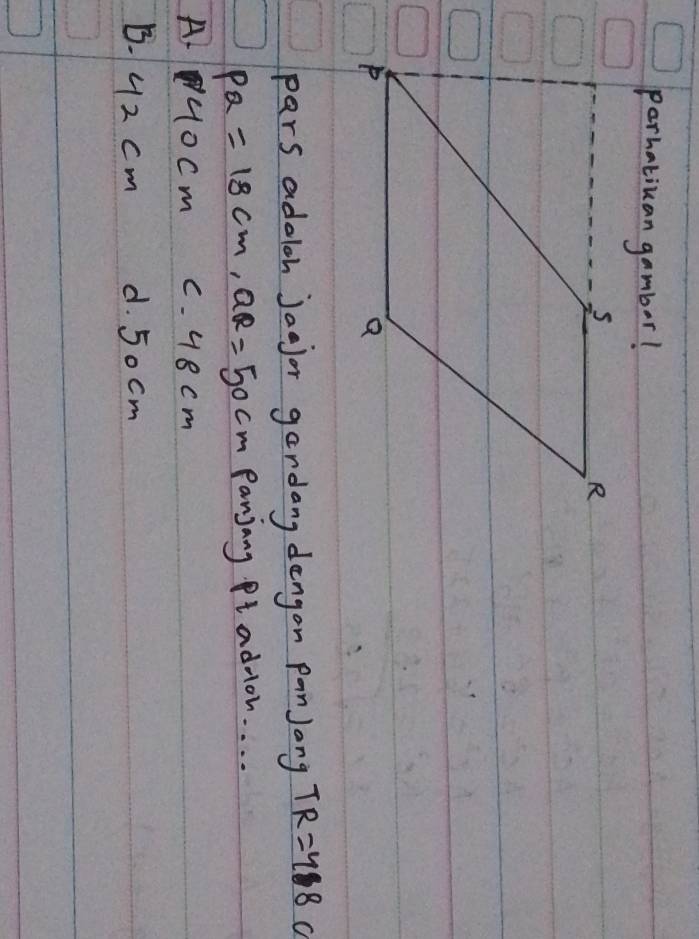 Parhatikan gambar!
S
R
P
Q
pqrs adalah jaajar gandang dengan panjang TR=48 c
PQ = 18 cm, QR = 50 cm panjang Pt adalah....
A. 40 cm c. 48 cm
B. 42 cm d. 50 cm